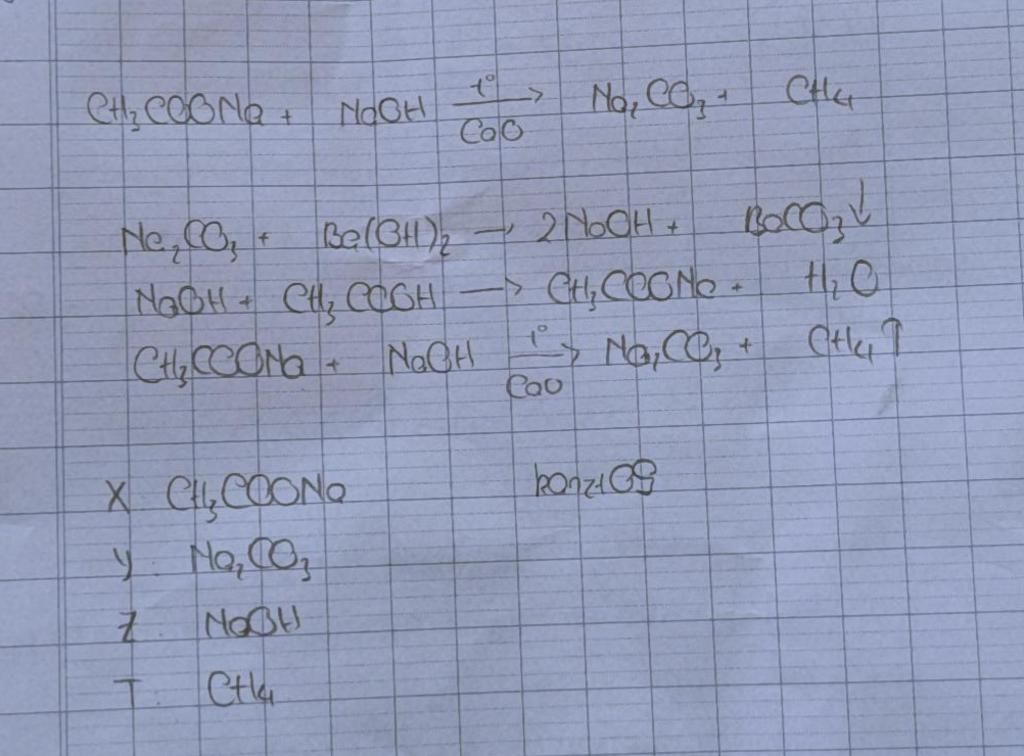 CH₃COONa + NaOH t° CaO → Na₂CO₃ + CH₄
Na₂CO₃ + Ba(OH)₂ → 2NaOH + BaCO₃↓
NaOH + CH₃COOH → CH₃COONa + H₂O
CH₃COONa + NaOH t° CaO → Na₂CO₃ + CH₄↑
X CH₃COONa
Y Na₂CO₃
Z NaOH
T CH₄